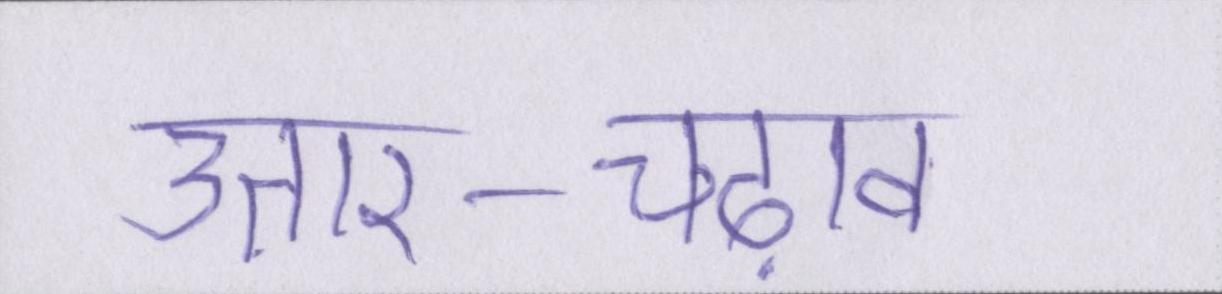 उतार-चढ़ाव